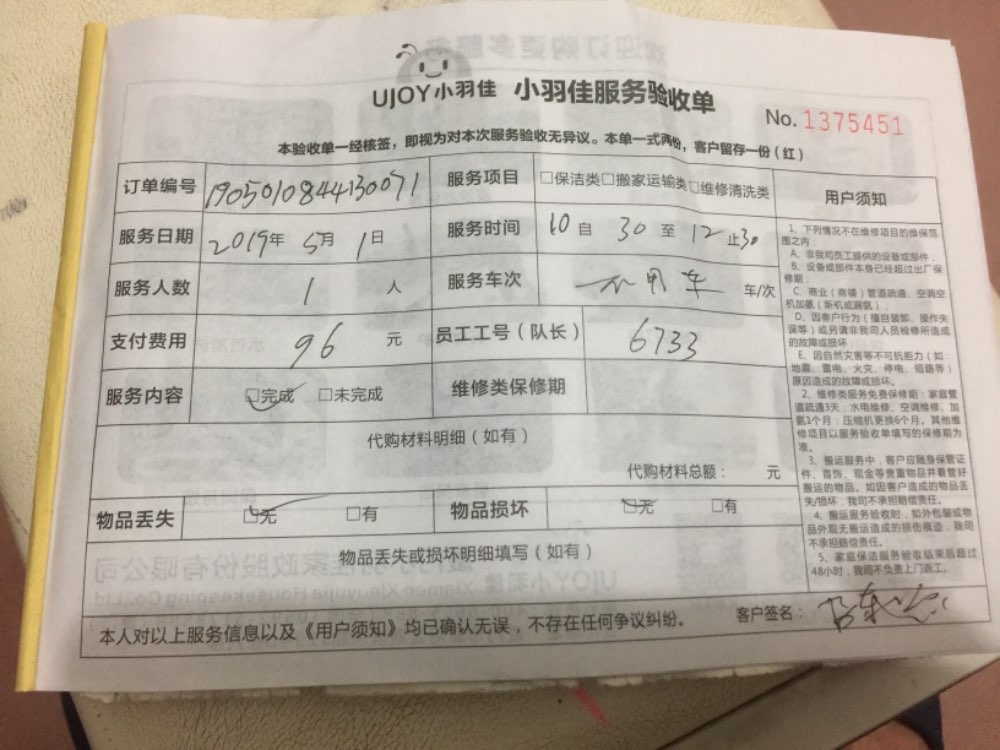 UJOY小羽佳 小羽佳服务验收单
No. 1375451
本验收单一经核签，即视为对本次服务验收无异议。本单一式两份，客户留存一份（红）
订单编号 1905010844130071 服务项目 □保洁类□搬家运输类□维修清洗类
服务日期 2019年 5月 1日 服务时间 10 自 30 至 12 止30
服务人数 1 人 服务车次 不用车 车/次
支付费用 96 元 员工工号（队长） 6733
服务内容 □完成 □未完成 维修类保修期
代购材料明细（如有）
代购材料总额： 元
物品丢失 □无 □有 物品损坏 □无 □有
物品丢失或损坏明细填写（如有）
本人对以上服务信息以及《用户须知》均已确认无误，不存在任何争议纠纷。
客户签名：
用户须知
1、下列情况不在维修项目的维保范
围之内：
A、非我司员工提供的设备或部件；
B、设备或部件本身已经超过出厂保
修期；
C、商业（商铺）管道疏通、空调空
机加氨（新机或漏氨）；
D、因客户行为（擅自装卸、操作失
误等）或另请非我司人员检修所造成
的故障或损坏；
E、因自然灾害等不可抗拒力（如：
地震、雷电、火灾、停电、短路等）
原因造成的故障或损坏。
2、维修类服务免费保修期：家庭管
道疏通3天；水电维修、空调维修、加
氨1个月；压缩机更换6个月。其他维
修项目以服务验收单填写的保修期为
准。
3、搬运服务中，客户应随身保管证
件、首饰、现金等贵重物品并看管好
搬运的物品。如因客户造成的物品丢
失/损坏，我司不承担赔偿责任。
4、搬运服务验收时，如外包装或物
品外观无搬运造成的损伤痕迹，我司
不承担赔偿责任。
5、家庭保洁服务验收结束后超过
48小时，我司不负责上门返工。